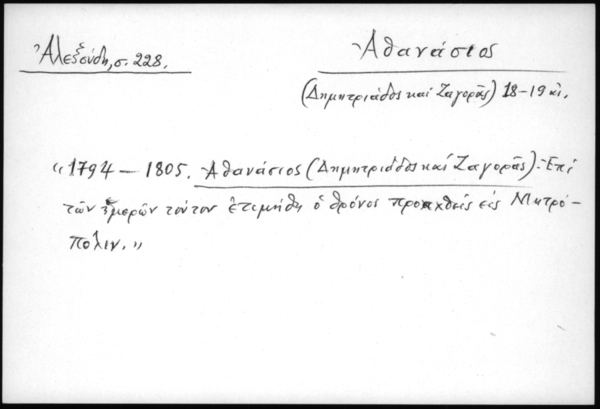 Ἀλεξούδη, σ. 228.
Ἀθανάσιος
(Δημητριάδος καί Ζαγορᾶς) 18-19 αἰ.
"1794 — 1805. Ἀθανάσιος (Δημητριάδος καί Ζαγορᾶς). Ἐπί
τῶν ἡμερῶν τούτου ἐτιμήθη ὁ θρόνος προαχθείς εἰς Μητρό-
πολιν."